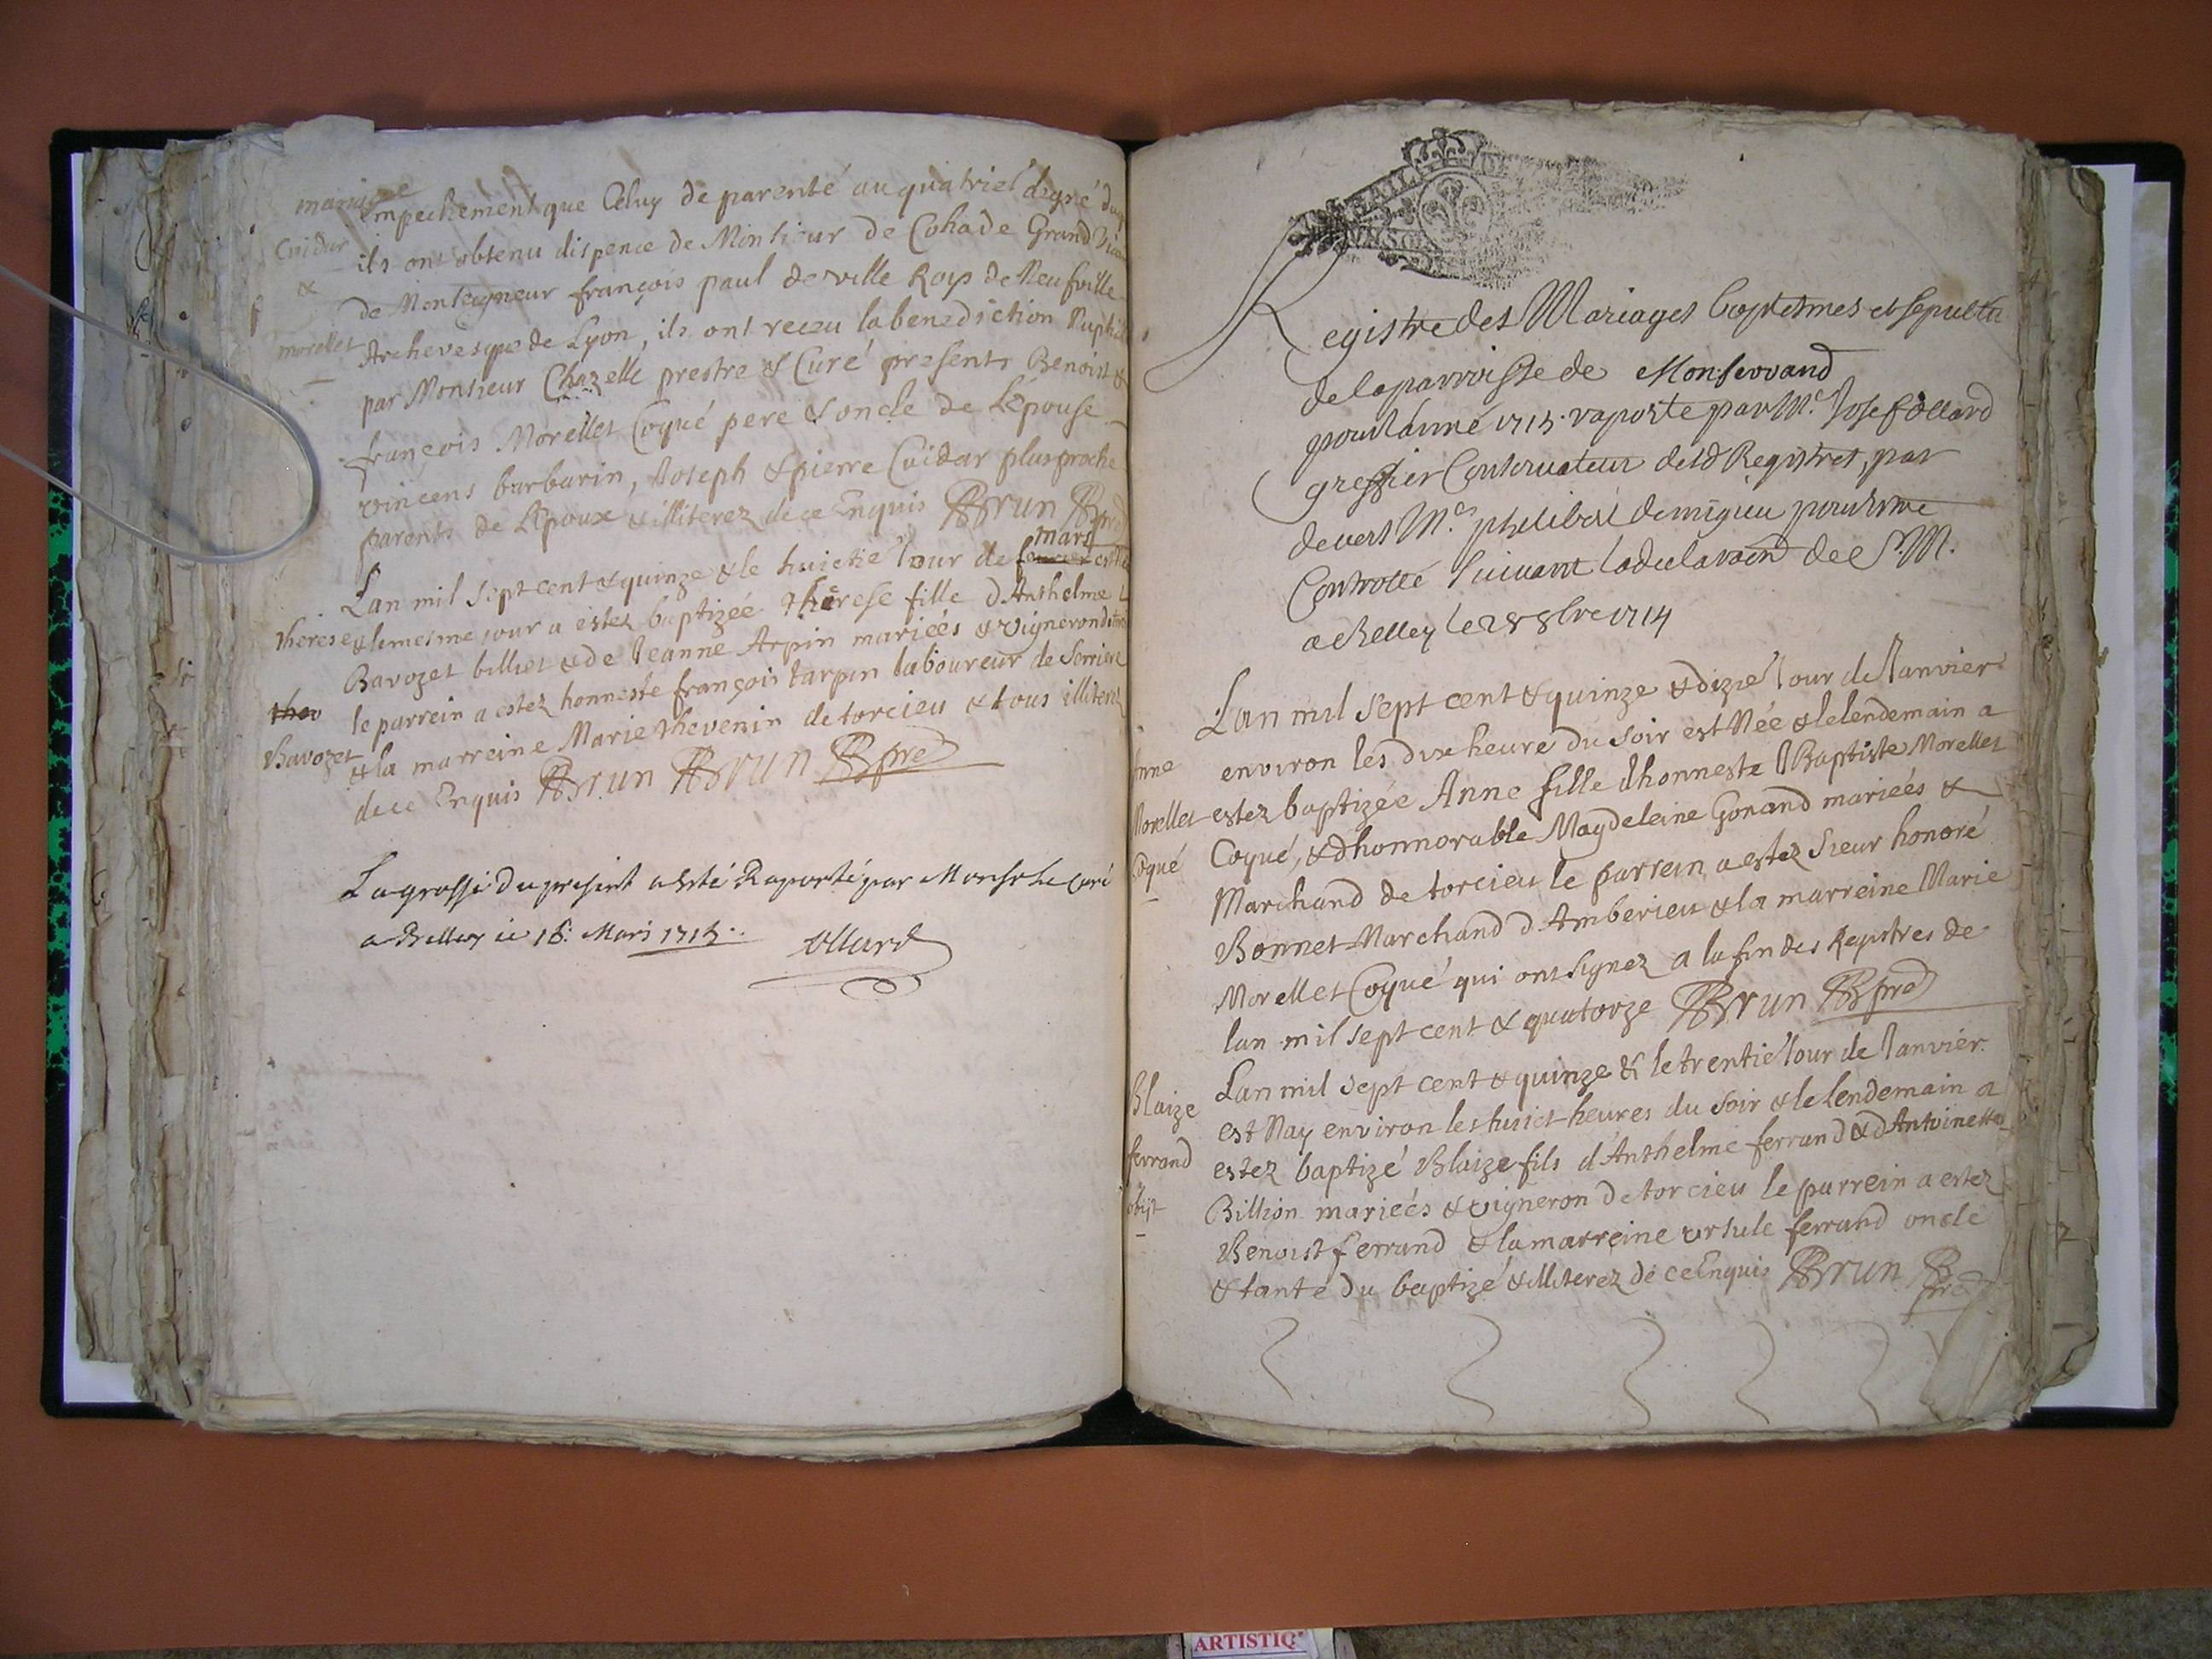 mariage
Cuidar
&
morellet
Empechement que Celuy de parenté au quatrie degré
ils ont obtenu dispence de Monsieur de Cohade Grand
de Monseigneur françois paul de ville Roys de Neufville
Archevesque de Lyon, ils ont receu la benediction
par Monsieur Chazelle prestre & Curé presents Benoist &
françois Morellet Coqué pere & oncle de L'épouse
vincens barbarin, Joseph & pierre Cuidar plus proche
parents de L'Epoux & illiterez de ce Enquis Brun
mars
Lan mil sept cent & quinze & le huictie Iour de
Therese & le mesme jour a estez baptizée therese fille d'Anthelme
Bavozet billiet & de Ieanne Arpin mariées & vigneron
thev le parrein a estez honneste françois tarpin laboureur de Serriere
Bavozet & la marreine Marie thevenin de torcieu & tous illiterez
de ce Enquis Brun Brun pre
La grosse du present a esté Raporté par Monsr le curé
a Belley ce 18: Mars 1715.
Ollard
Registre des Mariages baptesmes et sepultu
de la parroisse de Monferrand
pour l'anné 1715. raporte par Me. Josef Ollard
greffier Conservateur desd Registres, par
devers Me. philibert demigieu pour
Controllé suivant la declaraon de S. M.
a Belley le 28 8bre 1714
Lan mil sept cent & quinze & dizie Iour de Ianvier
environ les dix heure du soir est Née & le lendemain a
Anne
Morellet estez baptizée Anne fille d'honneste JBaptiste Morellet
Coqué Coqué, & d'honnorable Magdeleine Gonand mariées &
Marchand de torcieu le parrein a estez Sieur honoré
Bonnet Marchand d'Amberieu & la marreine Marie
Morellet Coqué qui ont signez a la fin des Registres de
lan mil sept cent & quatorze Brun pre
Lan mil sept cent & quinze & le trentie Iour de Ianvier
Blaize est Nay environ les huict heures du soir & le lendemain a
ferrand estez baptizé Blaize fils d'Anthelme ferrand & d'Antoinette
obijt Billion mariées & vigneron de torcieu le parrein a estez
Benoist ferrand & la marreine ursule ferrand oncle
& tante du baptizé & illiterez de ce Enquis Brun
pre
ARTISTIQ